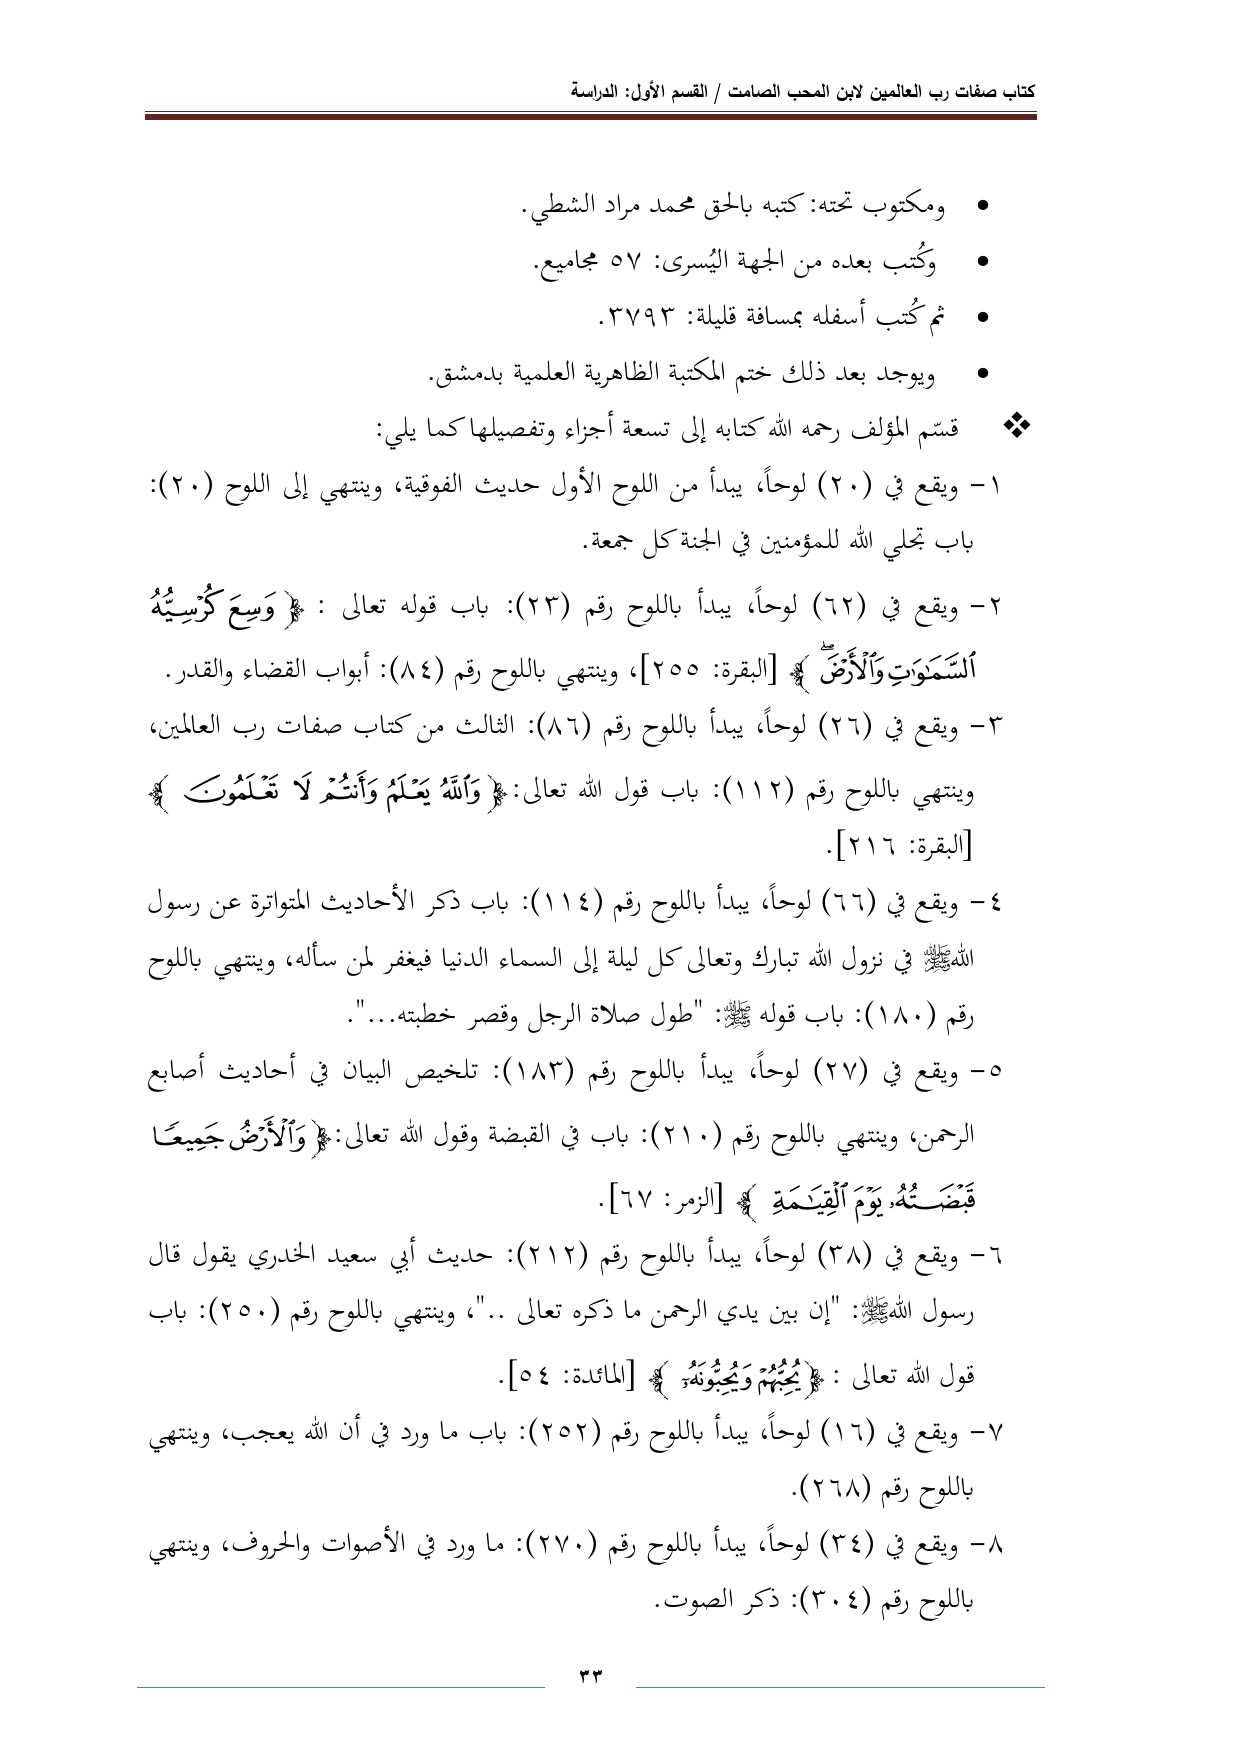 كتاب صفات رب العالمين لابن المحب الصامت / القسم الأول: الدراسة
• ومكتوب تحته: كتبه بالحق محمد مراد الشطي.
• وكُتب بعده من الجهة اليُسرى: ٥٧ مجاميع.
• ثم كُتب أسفله بمسافة قليلة: ٣٧٩٣.
• ويوجد بعد ذلك ختم المكتبة الظاهرية العلمية بدمشق.
❖ قسّم المؤلف رحمه الله كتابه إلى تسعة أجزاء وتفصيلها كما يلي:
١- ويقع في (٢٠) لوحاً، يبدأ من اللوح الأول حديث الفوقية، وينتهي إلى اللوح (٢٠):
باب تجلي الله للمؤمنين في الجنة كل جمعة.
٢- ويقع في (٦٢) لوحاً، يبدأ باللوح رقم (٢٣): باب قوله تعالى : ﴿ وَسِعَ كُرْسِيُّهُ
ٱلسَّمَٰوَٰتِ وَٱلْأَرْضَۖ ﴾ [البقرة: ٢٥٥]، وينتهي باللوح رقم (٨٤): أبواب القضاء والقدر.
٣- ويقع في (٢٦) لوحاً، يبدأ باللوح رقم (٨٦): الثالث من كتاب صفات رب العالمين،
وينتهي باللوح رقم (١١٢): باب قول الله تعالى: ﴿ وَٱللَّهُ يَعْلَمُ وَأَنتُمْ لَا تَعْلَمُونَ ﴾
[البقرة: ٢١٦].
٤- ويقع في (٦٦) لوحاً، يبدأ باللوح رقم (١١٤): باب ذكر الأحاديث المتواترة عن رسول
اللهﷺ في نزول الله تبارك وتعالى كل ليلة إلى السماء الدنيا فيغفر لمن سأله، وينتهي باللوح
رقم (١٨٠): باب قوله ﷺ: "طول صلاة الرجل وقصر خطبته...".
٥- ويقع في (٢٧) لوحاً، يبدأ باللوح رقم (١٨٣): تلخيص البيان في أحاديث أصابع
الرحمن، وينتهي باللوح رقم (٢١٠): باب في القبضة وقول الله تعالى: ﴿ وَٱلْأَرْضُ جَمِيعًا
قَبْضَتُهُۥ يَوْمَ ٱلْقِيَٰمَةِ ﴾ [الزمر: ٦٧].
٦- ويقع في (٣٨) لوحاً، يبدأ باللوح رقم (٢١٢): حديث أبي سعيد الخدري يقول قال
رسول اللهﷺ: "إن بين يدي الرحمن ما ذكره تعالى .."، وينتهي باللوح رقم (٢٥٠): باب
قول الله تعالى : ﴿ يُحِبُّهُمْ وَيُحِبُّونَهُۥٓ ﴾ [المائدة: ٥٤].
٧- ويقع في (١٦) لوحاً، يبدأ باللوح رقم (٢٥٢): باب ما ورد في أن الله يعجب، وينتهي
باللوح رقم (٢٦٨).
٨- ويقع في (٣٤) لوحاً، يبدأ باللوح رقم (٢٧٠): ما ورد في الأصوات والحروف، وينتهي
باللوح رقم (٣٠٤): ذكر الصوت.
٣٣